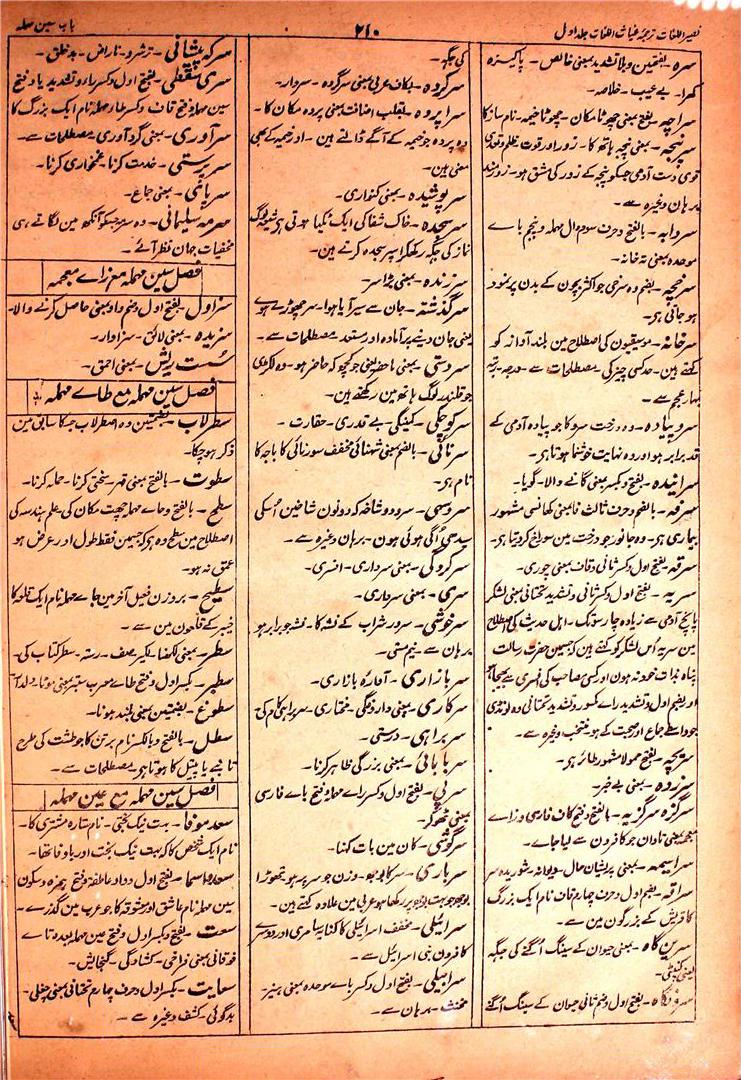 نصیر اللغات ترجمہ غیاث اللغات جلد اول
۲۱۰
باب سین مہملہ
سرہ - بفتحتین و بلا تشدید بمعنی خالص - پاکیزہ
کھرا - بے عیب - خلاصہ -
سراچہ - بفتح بمعنی چھوٹا مکان - چھوٹا خیمہ - نام ساز کا
سرپنجہ - بمعنی پنجہ ہاتھ کا - زور اور قوت ظلم و تعدی
قوی دست آدمی جسکو پنجہ کے زور کی مشق ہو - زورمند
برہان وغیرہ سے -
سردابہ - بالفتح و حرف سوم دال مہملہ و پنجم باے
موحدہ بمعنی تہ خانہ -
سرخجہ - بضم وہ سرخی جو اکثر بچون کے بدن پر نمود
ہو جاتی ہی -
سرخانہ - موسیقیون کی اصطلاح مین بلند آوانہ کو
کہتے ہین - حد کسی چیز کی مصطلحات سے - درجہ - رتبہ
بہار عجم سے -
سرو پیادہ - وہ درخت سرو کا جو پیادہ آدمی کے
قد برابر ہو اور وہ نہایت خوشنما ہوتا ہی -
سرایندہ - بفتح و بکسر بمعنی گانے والا - گویا -
سرفہ - بالضم و حرف ثالث فا بمعنی کھانسی مشہور
بیماری ہی - وہ جانور جو درخت مین سوراخ کر دیتا ہی -
سرقہ - بفتح اول و کسر ثانی و قاف بمعنی چوری -
سریہ - بفتح اول و کسر ثانی و تشدید تحتانی بمعنی لشکر
پانچ آدمی سے زیادہ چار سو تک - اہل حدیث کی اصطلاح
مین سریہ اُس لشکر کو کہتے ہین کہ جسمین حضرت رسالت
پناہ بذات خود نہ ہون اور کسی مصاحب کی افسری سے بھیجا ہو
اور بضم اول و تشدید راے مکسور و تشدید تحتانی وہ لونڈی
جو واسطے جماع اور صحبت کے ہو منتخب وغیرہ سے -
سریچہ - بفتح ممولا مشہور طائر ہی -
سرزدہ - بمعنی بے خبر -
سرگزہ سرگزیہ - بالفتح و فتح کاف فارسی و زاے
معجمہ بمعنی تاوان جو کافرون سے لیا جاے -
سراسیمہ - بمعنی پریشان حال - دیوانہ - شوریدہ سر
سراقہ - بضم اول و حرف چہارم قاف نام ایک بزرگ
کا قریش کے بزرگون مین سے -
سرین گاہ - بمعنی حیوان کے سینگ اُگنے کی جگہ
یعنی کنپٹی -
سرونگاہ - بفتح اول و ضم ثانی حیوان کے سینگ اُگنے
کی جگہ -
سرگروہ - بکاف عربی بمعنی سرگروہ - سردار -
سراپردہ - بقلب اضافت بمعنی پردہ مکان کا -
وہ پردہ جو خیمہ کے آگے ڈالتے ہین - اور خیمہ کے بھی
معنی ہین -
سرپوشیدہ - بمعنی کنواری -
سرسجدہ - خاک شفا کی ایک ٹکیا ہوتی ہی شیعہ لوگ
نماز کی جگہ رکھکر اسپر سجدہ کرتے ہین -
سرزندہ - بمعنی بڑا سر -
سرگذشتہ - جان سے سیر آیا ہوا - سر چھوڑے ہوے
یعنی جان دینے پر آمادہ اور مستعد مصطلحات سے -
سردستی - بمعنی ماحضر یعنی جو کچھ کہ حاضر ہو - وہ لکڑی
جو قلندر لوگ ہاتھ مین رکھتے ہین -
سرکوچکی - کمینگی - بے قدری - حقارت -
سرنائی - بالضم بمعنی شہنائی مخفف سورنائی کا باجہ کا
نام ہی -
سروسہی - سرو دو شاخہ کہ دونون شاخین اُسکی
سیدھی اُگی ہوئی ہون - برہان وغیرہ سے -
سرکردگی - بمعنی سرداری - افسری -
سری - بمعنی سرداری -
سرخوشی - سرور شراب کے نشہ کا - نشہ جو برابر ہو
برہان سے - نیم مستی -
سربازاری - آوارہ بازاری -
سرکاری - بمعنی داروغگی - مختاری - سربراہی کام کی
سربراہی - درستی -
سربابائی - بمعنی بزرگی ظاہر کرنا -
سرپی - بفتح اول و کسر راے مہملہ و فتح باے فارسی
بمعنی ٹھوکر -
سرگوشی - کان مین بات کہنا -
سرباری - سر کا بوجھ - وزن جو سر پر ہو تھوڑا
بوجھ جو بہت بوجھ پر رکھا ہو عربی مین علاوہ کہتے ہین -
سرائیلی - مخفف اسرائیلی کا کنایہ سامری اور دوسرے
کافرون بنی اسرائیل سے -
سرابیلی - بفتح اول و کسر باے موحدہ بمعنی
مخنث - برہان سے -
سرکہ پیشانی - ترشرو - ناراض - بدخلق -
سری سقطی - بفتح اول و کسر راء و تشدید یا و فتح
سین مہملہ و فتح قاف و کسر طاء مہملہ نام ایک بزرگ کا
سرآوری - بمعنی گردآوری مصطلحات سے -
سرپرستی - خدمت کرنا - غمخواری کرنا -
سرپائی - بمعنی جماع -
سرمہ سلیمانی - وہ سرمہ جسکو آنکھ مین لگاتے ہی
مخفیات جہان نظر آئے -
فصل سین مہملہ مع زاے معجمہ
سزاول - بفتح اول و ضم واو بمعنی حاصل کرنے والا -
سزیدہ - بمعنی لائق - سزاوار -
سست ریش - بمعنی احمق -
فصل سین مہملہ مع طاے مہملہ
سطرلاب - بضمتین وہ اصطرلاب جسکا سابق مین
ذکر ہو چکا -
سطوت - بالفتح بمعنی قہر - سختی کرنا - حملہ کرنا -
سطح - بالفتح و حاے مہملہ چھت مکان کی - علم ہندسہ کی
اصطلاح مین سطح وہ ہی کہ جسمین فقط طول اور عرض ہو
عمق نہ ہو -
سطیح - بروزن فعیل آخر مین حاے مہملہ نام ایک قلعہ کا
خیبر کے قلعون مین سے -
سطر - بمعنی لکھنا - لکیر - صف - رستہ - سطر کتاب کی -
سطبر - بکسر اول و فتح طاے معرب ستبر بمعنی موٹا - دلدار
سطوع - بضمتین بمعنی بلند ہونا -
سطل - بالفتح و بالکسر نام برتن کا جو طشت کی طرح
تانبے یا پیتل کا ہوتا ہی - مصطلحات سے -
فصل سین مہملہ مع عین مہملہ
سعد موفا - بہت نیک بختی - نام ستارہ مشتری کا -
نام ایک شخص کا کہ بہت نیک بخت اور باوفا تھا -
سعد و اسما - بفتح اول و واو عاطفہ و فتح ہمزہ و سکون
سین مہملہ نام عاشق اور معشوقہ کا جو عرب مین گذرے -
سعت - بفتح و بکسر اول و فتح عین مہملہ بعدہ تاے
فوقانی بمعنی فراخی - کشادگی - گنجایش -
سعایت - بکسر اول و حرف چہارم تحتانی بمعنی چغلی -
بدگوئی - کشف وغیرہ سے -